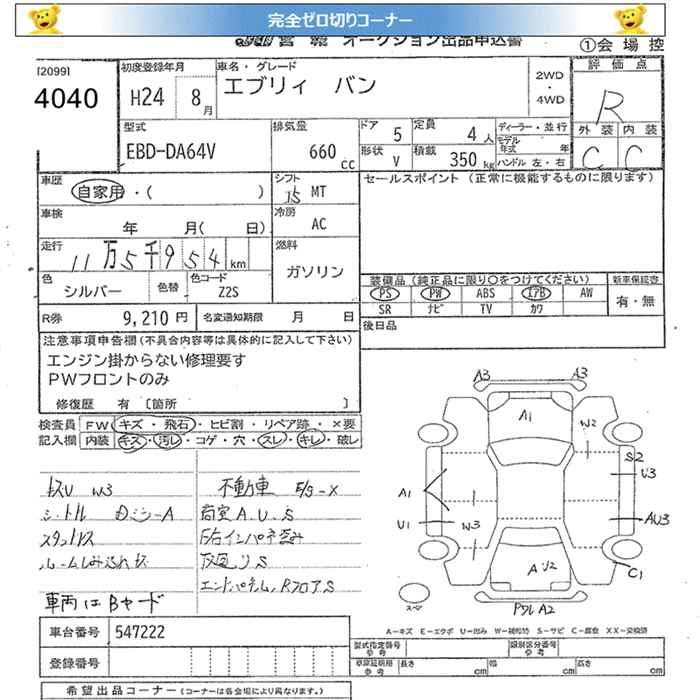 完全ゼロ切りコーナー
オークション出品申込書
①会場控
[2099]
4040
初度登録年月
H24 8月
車名・グレード
エブリィ バン
2WD・4WD
評価点
R
外装 内装
C C
型式
EBD-DA64V
排気量
660 cc
ドア 5
定員 4人
形状 V
積載 350kg
ディーラー・並行
モデル年式 年
ハンドル 左・右
車歴
自家用・( )
シフト
I5 MT
セールスポイント (正常に機能するものに限ります)
車検
年 月( 日)
冷房
AC
走行
11万5千954km
燃料
ガソリン
色
シルバー
色替
色コード
Z2S
装備品(純正品に限り○をつけてください)
PS PW ABS エアB AW
SR ナビ TV カワ
新車保証書
有・無
R券 9,210円
名変通知期限 月 日
後日品
注意事項申告欄(不具合内容等は具体的に記入して下さい)
エンジン掛からない修理要す
PWフロントのみ
修復歴 有 [箇所 ]
検査員記入欄
FW キズ・飛石・ヒビ割・リペア跡・×要
内装 キズ・汚レ・コゲ・穴・スレ・キレ・破レ
W3
不動車 E/S-X
A.U.S
車両はBヤード
A3 A3
A1
W2
S2
U3
A1
U1
W3
AU3
C1
A U2
スペア
A2
A-キズ E-エクボ U-凹み W-補修跡 S-サビ C-腐食 XX-交換済
車台番号 547222
登録番号
型式指定番号 参考
類別区分番号 参考
車庫証明用 参考
長さ cm 幅 cm 高さ cm
希望出品コーナー(コーナーは各会場により異なります。)